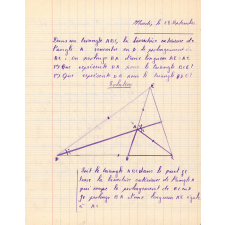 le 18 Septembre
Dans un triangle ABC, la bissectrice extérieure de
l'angle A rencontre en D le prolongement de
BC : on prolonge DA d'une longueur AE = AC
1° Que représente DA pour le triangle
2° Que représente DA pour le triangle
Solution
Soit le triangle ABC dans lequel je
trace la bissectrice extérieure de l'angle A
qui coupe le prolongement de BC en D
je prolonge BA d'une longueur AE égale
à AC